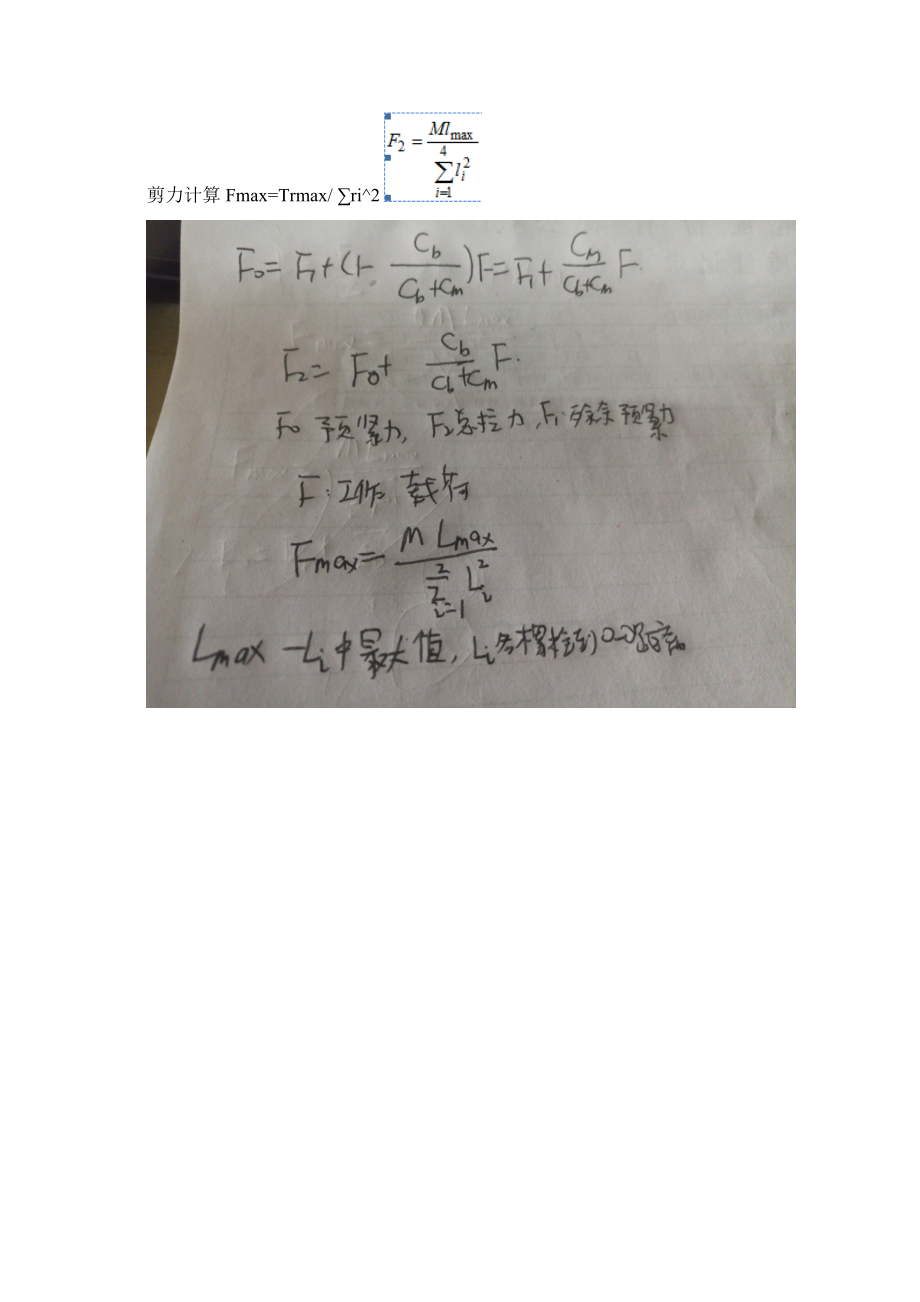 剪力计算 Fmax=Trmax/ ∑ri^2 F₂ = Ml_max / ∑_{i=1}^{4} l_i^2
F₀ = F₁ + (1 - C_b / (C_b + C_m)) F = F₁ + C_m / (C_b + C_m) F.
F₂ = F₀ + C_b / (C_b + C_m) F.
F₀ 预紧力, F₂总拉力, F₁:残余预紧力
F:工作 载荷
Fmax = M Lmax / ∑_{i=1}^{2} L_i^2
Lmax —L_i中最大值, L_i各螺栓到0-0